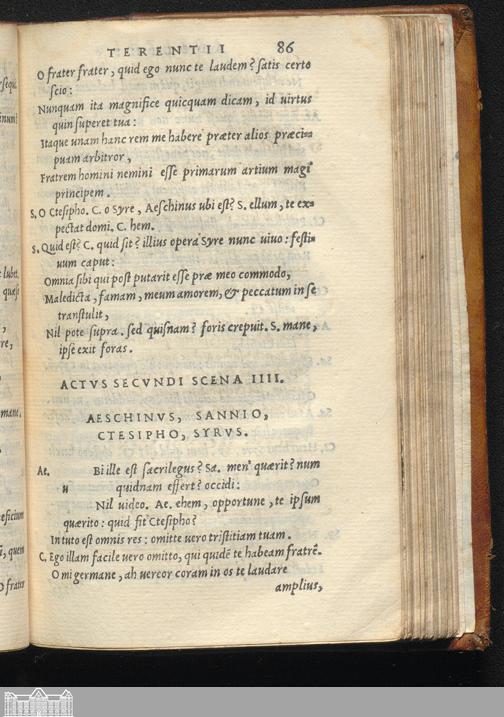 TERENTII 86
O frater frater, quid ego nunc te laudem? satis certo
scio:
Nunquam ita magnifice quicquam dicam, id uirtus
quin superet tua:
Itaque unam hanc rem me habere præter alios præci=
puam arbitror,
Fratrem homini nemini esse primarum artium magi'
principem.
S. O Ctesipho. C. o Syre, Aeschinus ubi est? S. ellum, te ex=
pectat domi. C. hem.
S. Quid est? C. quid sit? illius opera Syre nunc uiuo: festi=
uum caput:
Omnia sibi qui post putarit esse præ meo commodo,
Maledicta, famam, meum amorem, & peccatum in se
transtulit,
Nil pote supra. sed quisnam? foris crepuit. S. mane,
ipse exit foras.
ACTVS SECVNDI SCENA IIII.
AESCHINVS, SANNIO,
CTESIPHO, SYRVS.
Ae. u Bi ille est sacrilegus? Sa. men' quærit? num
quidnam effert? occidi:
Nil uideo. Ae. ehem, opportune, te ipsum
quærito: quid fit Ctesipho?
In tuto est omnis res: omitte uero tristitiam tuam.
C. Ego illam facile uero omitto, qui quidē te habeam fratrē.
O mi germane, ah uereor coram in os te laudare
amplius,